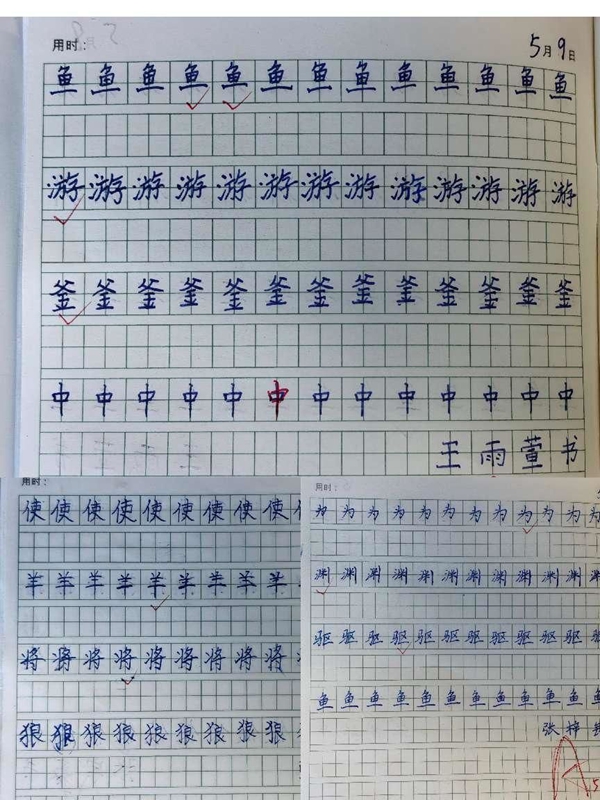 用时：
5月9日
鱼鱼鱼鱼鱼鱼鱼鱼鱼鱼鱼鱼
游游游游游游游游游游游游
釜釜釜釜釜釜釜釜釜釜釜釜
中中中中中中中中中中中中
王雨萱书
用时：
使使使使使使使使使
羊羊羊羊羊羊羊羊羊
将将将将将将将将将
狼狼狼狼狼狼狼狼狼
用时：
为为为为为为为为为为为为
渊渊渊渊渊渊渊渊渊渊渊渊
驱驱驱驱驱驱驱驱驱驱驱驱
鱼鱼鱼鱼鱼鱼鱼鱼鱼鱼鱼鱼
张梓
A
5